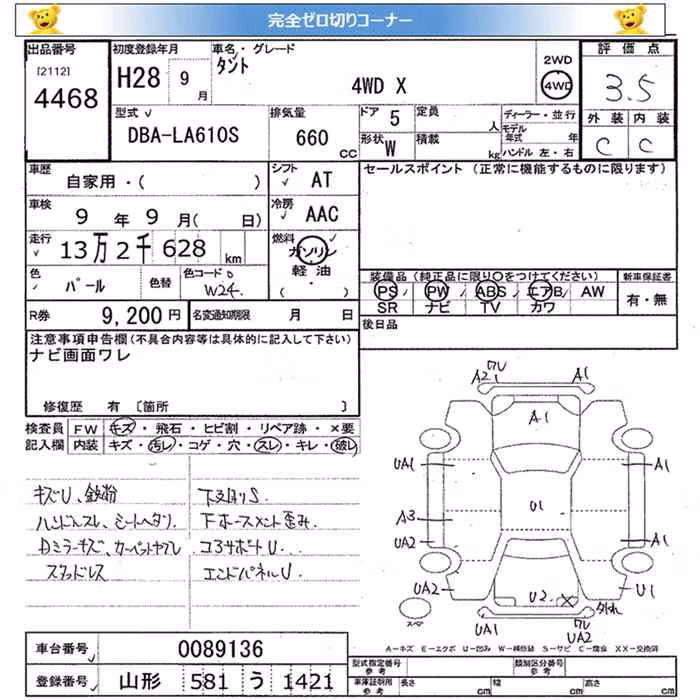 完全ゼロ切りコーナー
出品番号
[2112]
4468
初度登録年月
H28 9 月
車名・グレード
タント
4WD X
2WD
4WD
評価点
3.5
外装 内装
C C
型式
DBA-LA610S
排気量
660 CC
ドア 5
形状 W
定員 人
積載 kg
ディーラー・並行
モデル年式 年
ハンドル 左・右
車歴
自家用・( )
シフト
AT
セールスポイント (正常に機能するものに限ります)
車検
9 年 9 月( 日)
冷房
AAC
走行
13万2千628 km
燃料
ガソリン
軽油
( ・ )
色
パール
色替
色コード
W24
装備品 (純正品に限り○をつけてください)
新車保証書
PS PW ABS エアB AW
SR ナビ TV カワ
有・無
R券 9,200円
名変通知期限 月 日
後日品
注意事項申告欄(不具合内容等は具体的に記入して下さい)
ナビ画面ワレ
修復歴 有 〔箇所 〕
検査員
記入欄
FW キズ・飛石・ヒビ割・リペア跡・×要
内装 キズ・汚レ・コゲ・穴・スレ・キレ・破レ
キズU、鉄粉
ハンドルスレ、シートヘタリ
Dミラーキズ、カーペットヤブレ
スタッドレス
下廻りS
下ホースメント歪み
コアサポートU
エンドパネルU
A2 ワレ A1
A1
UA1 A1
U1
A3
UA2 A1
UA2 U2 X U1
ハズレ
スペア
UA1 ワレ
UA2
A-キズ E-エクボ U-凹み W-補修跡 S-サビ C-腐食 XX-交換済
車台番号
0089136
登録番号
山形 581 う 1421
型式指定番号
参考
類別区分番号
参考
車庫証明用
参考
長さ cm 幅 cm 高さ cm